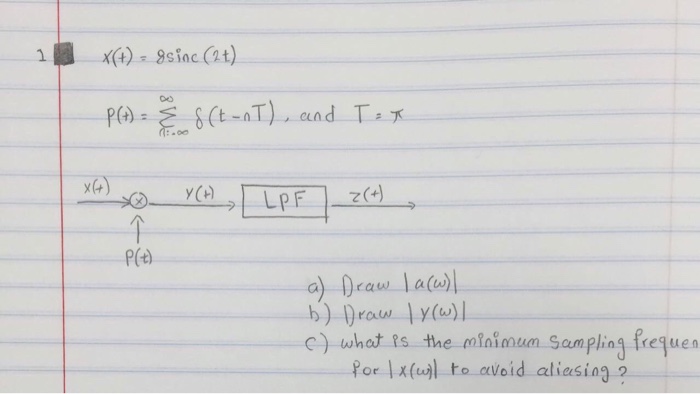 1 x(t) = 8sinc(2t)
P(t) = ∞ Σ n=-∞ δ(t-nT), and T = π
x(t) y(t) LPF z(t)
P(t)
a) Draw |a(ω)|
b) Draw |y(ω)|
c) what is the minimum sampling frequen
for |x(ω)| to avoid aliasing?